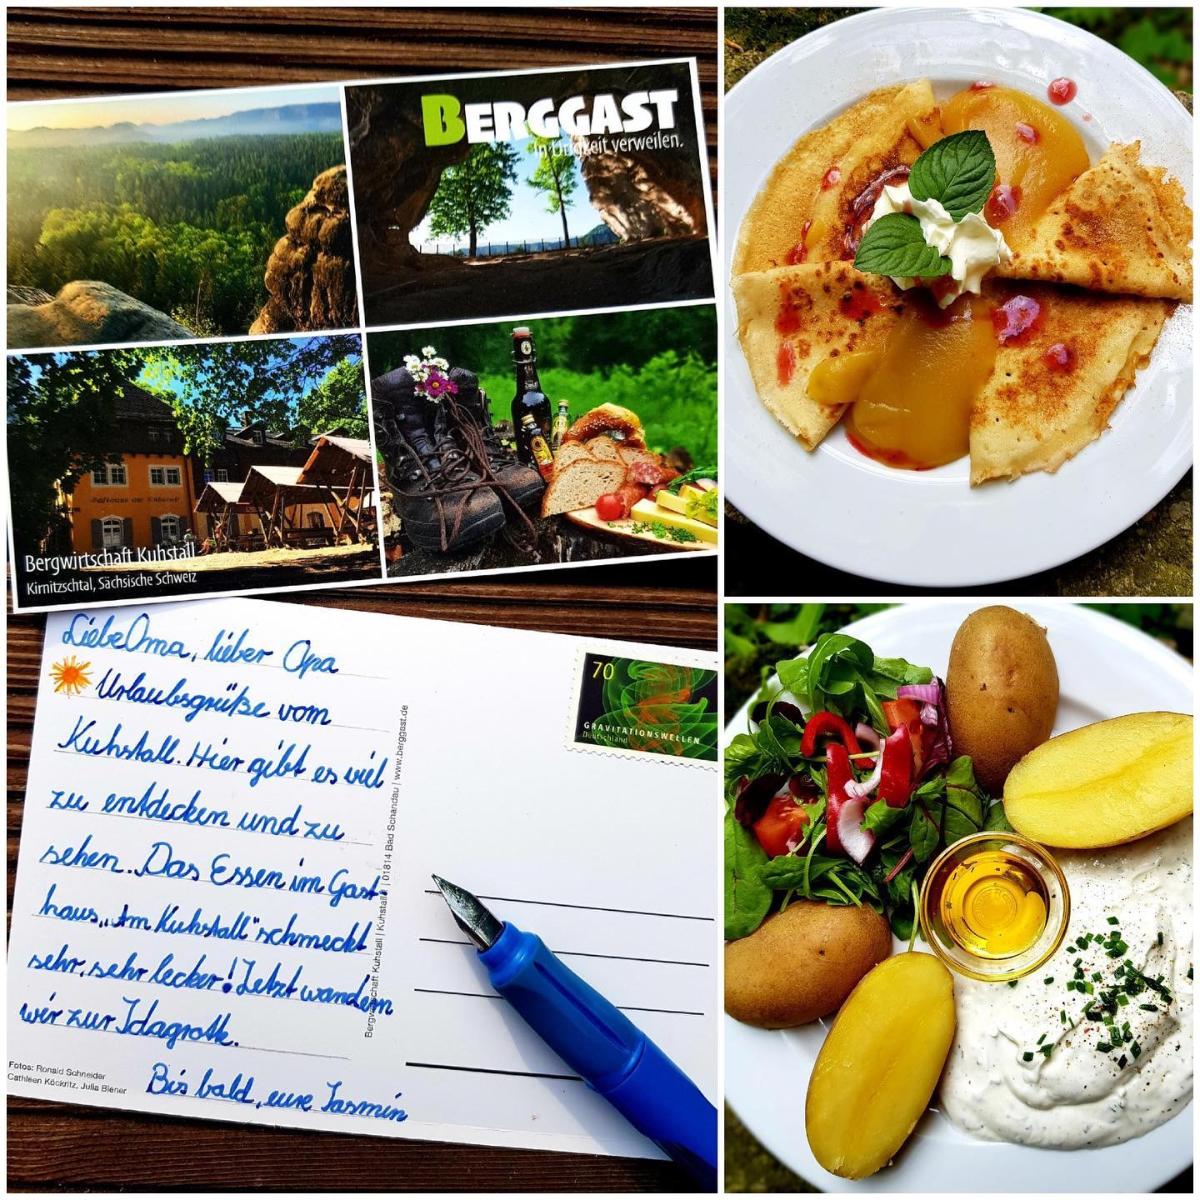 BERGGAST
in Urigkeit verweilen.
Bergwirtschaft Kuhstall
Kirnitzschtal, Sächsische Schweiz
Liebe Oma, lieber Opa
Urlaubsgrüße vom
Kuhstall. Hier gibt es viel
zu entdecken und zu
sehen. Das Essen im Gast-
haus „Am Kuhstall" schmeckt
sehr, sehr lecker! Jetzt wandern
wir zur Idagrotte.
Bis bald, eure Jasmin
70
GRAVITATIONSWELLEN
Deutschland
Bergwirtschaft Kuhstall | Kuhstall 1 | 01814 Bad Schandau | www.berggast.de
Fotos: Ronald Schneider
Cathleen Köckritz, Julia Biener